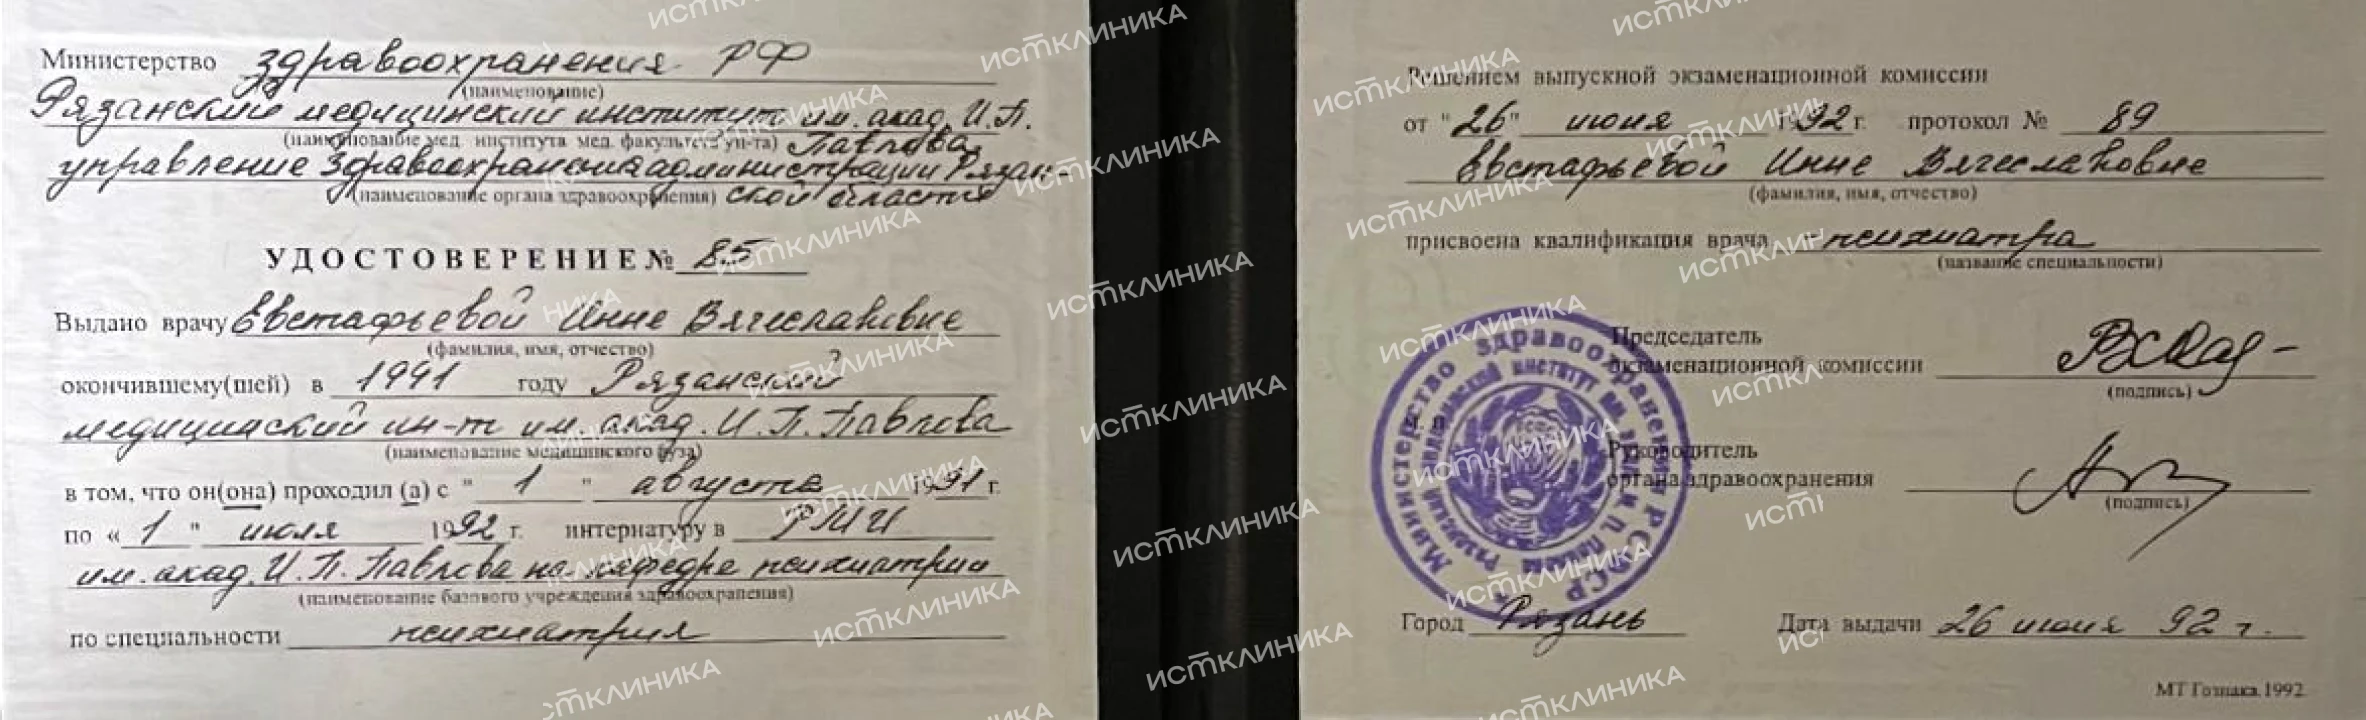 Министерство здравоохранения РФ
(наименование)
Рязанский медицинский институт им. акад. И.П.
(наименование мед. института мед. факультета ун-та) Павлова,
управление здравоохранения администрации Рязан-
(наименование органа здравоохранения) ской области
УДОСТОВЕРЕНИЕ № 85
Выдано врачу Евстафьевой Инне Вячеславовне
(фамилия, имя, отчество)
окончившему(шей) в 1991 году Рязанский
медицинский ин-т им. акад. И.П. Павлова
(наименование медицинского вуза)
в том, что он(она) проходил (а) с "1" августа 1991 г.
по «1" июля 1992 г. интернатуру в РМИ
им. акад. И.П. Павлова на кафедре психиатрии
(наименование базового учреждения здравоохранения)
по специальности психиатрия
Решением выпускной экзаменационной комиссии
от "26" июня 1992 г. протокол № 89
Евстафьевой Инне Вячеславовне
(фамилия, имя, отчество)
присвоена квалификация врача - психиатра
(название специальности)
Председатель
экзаменационной комиссии
(подпись)
М. П.
Руководитель
органа здравоохранения
(подпись)
Министерство здравоохранения РСФСР
Рязанский медицинский институт им. акад. И. П. Павлова
Город Рязань Дата выдачи 26 июня 92 г.
МТ Гознака. 1992
ИСТКЛИНИКА